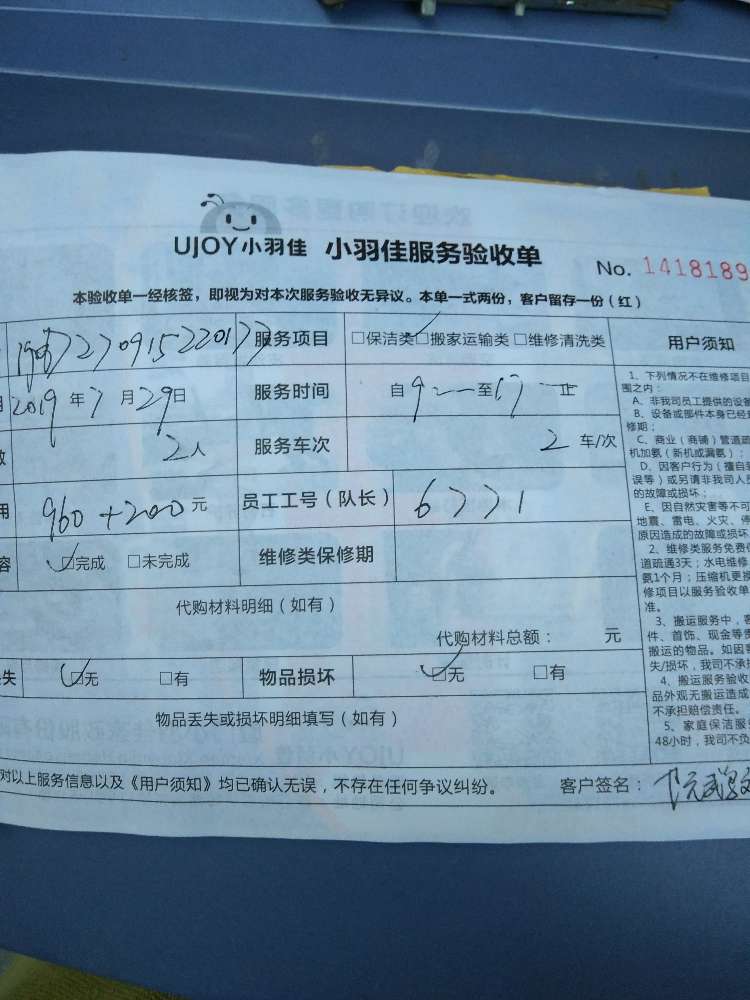 UJOY小羽佳 小羽佳服务验收单
No. 1418189
本验收单一经核签，即视为对本次服务验收无异议。本单一式两份，客户留存一份（红）
服务项目 □保洁类 □搬家运输类 □维修清洗类
2019年7月29日 服务时间 自9 至17 止
2人 服务车次 2车/次
960+200元 员工工号（队长） 6771
容 □完成 □未完成 维修类保修期
代购材料明细（如有）
代购材料总额： 元
失 □无 □有 物品损坏 □无 □有
物品丢失或损坏明细填写（如有）
对以上服务信息以及《用户须知》均已确认无误，不存在任何争议纠纷。 客户签名：
用户须知
1、下列情况不在维修项目
围之内：
A、非我司员工提供的设备
B、设备或部件本身已经
修期；
C、商业（商铺）管道疏
机加氨（新机或漏氨）；
D、因客户行为（擅自
误等）或另请非我司人员
的故障或损坏；
E、因自然灾害等不可
地震、雷电、火灾、
原因造成的故障或损坏
2、维修类服务免费
道疏通3天；水电维修
氨1个月；压缩机更换
修项目以服务验收单
准。
3、搬运服务中，客
件、首饰、现金等贵
搬运的物品。如因客
失/损坏，我司不承担
4、搬运服务验收
品外观无搬运造成
不承担赔偿责任。
5、家庭保洁服
48小时，我司不负